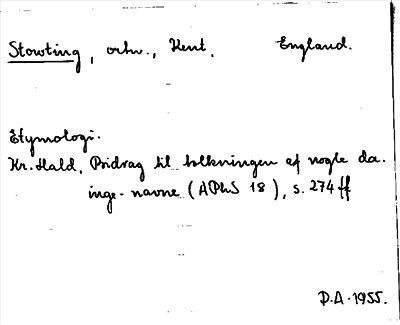 Stowting, orhv., Kent. England.
Etymologi.
Kr. Hald, Bidrag til tolkningen af nogle da.
inge-navne (APhS 18), s. 274 ff
D.A. 1955.